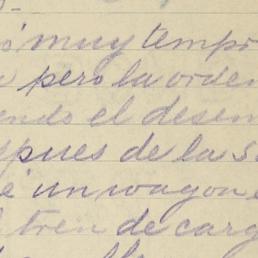 ó muy tempr
pero la orden
endo el desem
spues de la s
é un wagon
tren de carg